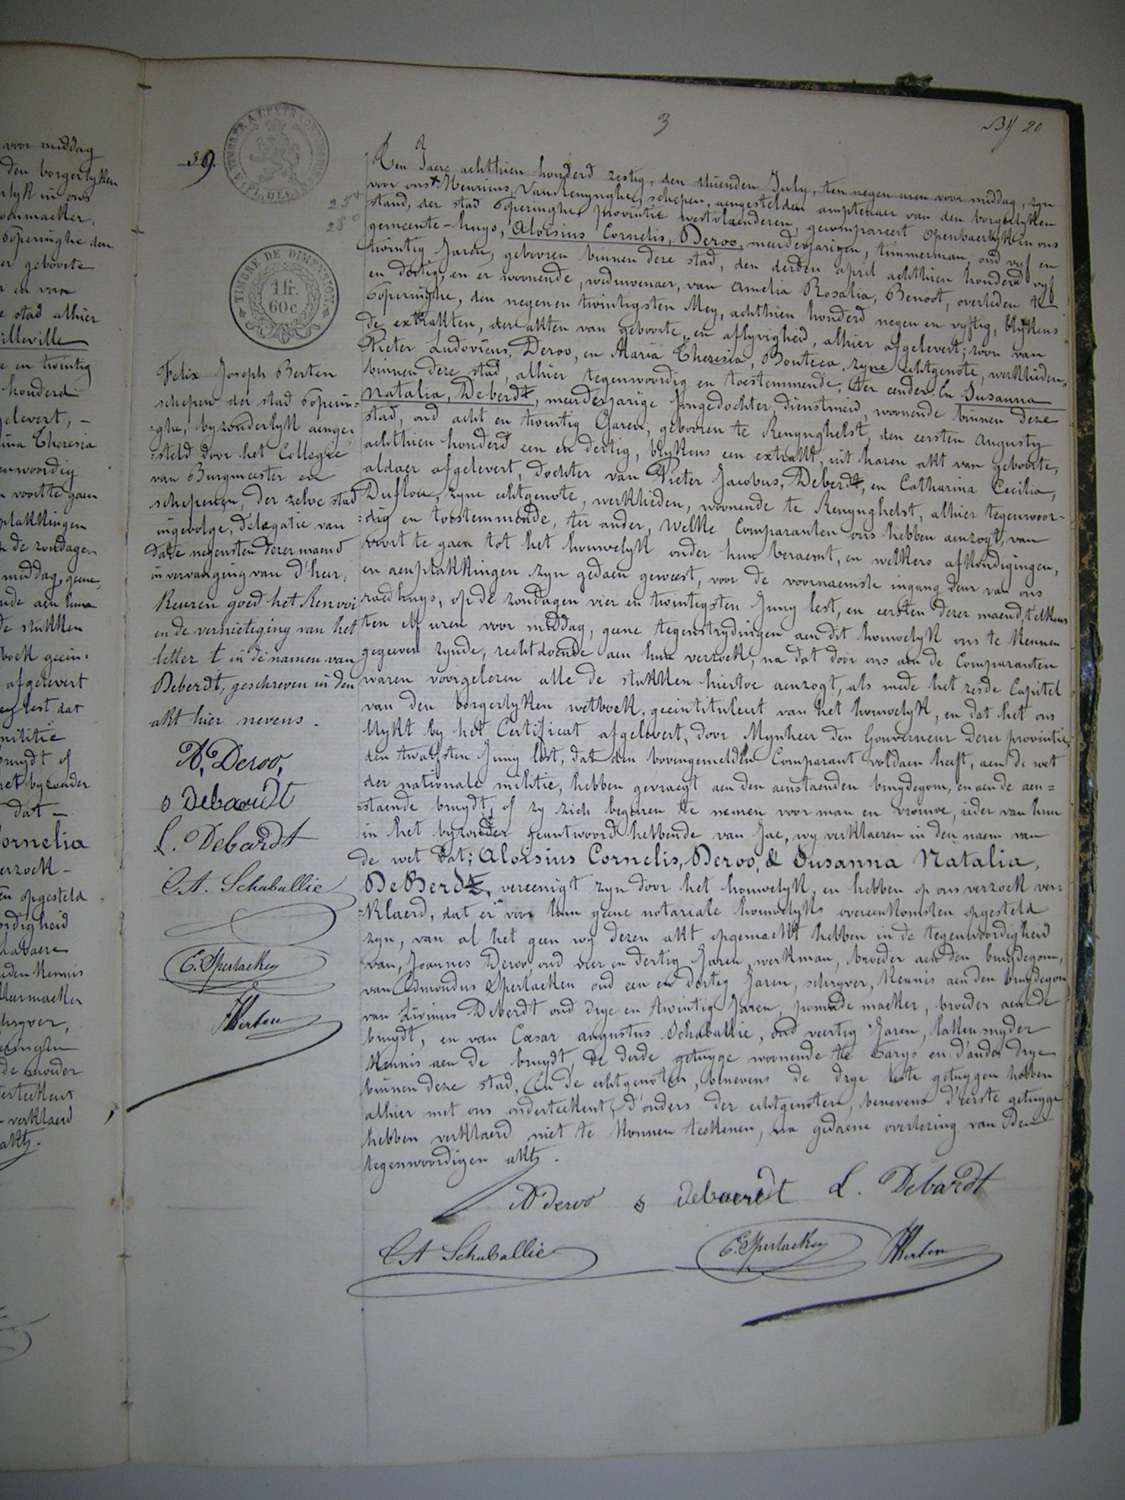 voor middag
den borgerlyken
3
By 20
59.
TIMBRE DE DIMENSION
1 fr.
60 c.
Felix Joseph Berten
schepen der stad Poperin-
-ghe, byzonderlyk aenge-
-steld door het Collegie
van Burgmeester en
schepenen, der zelve stad
ingevolge, delegatie van
date negensten dezer maend
in vervanging van d'heer,
Keuren goed het Renvooi
en de vernietiging van het
letter t in de namen van
Deberdt, geschreven in den
akt hier nevens.
A, Deroo,
s Debaerdt
L. Debardt
C. A. Schaballie
E. Sperlaeken
Berten
Ten Jaere achthien honderd zestig, den thienden July, ten negen uren voor middag, zyn
voor ons + Henricus, Vanrenynghe, schepen, aengestelden amptenaer van den borgerlyken
stand, der stad Poperinghe, provintie westvlaenderen, gecompareert openbaerlyk in ons
gemeente-huys, Aloisius Cornelis, Deroo, meerderjarigen, timmerman, oud vyf en
twintig Jaren, gebooren binnen deze stad, den derden april achthien honderd vyf
en dertig, en er woonende, weduwenaer, van Amelia Rosalia, Benoot, overleden te
Poperinghe, den negen en twintigsten Mey, achthien honderd negen en vyftig, blykens
de extrakten, der akten van geboorte, en aflyvigheid, alhier afgelevert; zoon van
Pieter Ludovicus, Deroo, en Maria Theresia, Bouteca, zyne echtgenote, werklieden,
binnen deze stad, alhier tegenwoordig en toestemmende, ter eender. En Susanna
Natalia, Deberdt, meerderjarige Jongedochter, dienstmeid, woonende binnen deze
stad, oud acht en twintig Jaren, gebooren te Renynghelst, den eersten Augusty
achthien honderd een en dertig, blykens een extrakt, uit haren akt van geboorte,
aldaer afgelevert, dochter van Pieter Jacobus, Deberdt, en Catharina Cecilia,
Duflou, zyne echtgenote, werklieden, woonende te Renynghelst, alhier tegenwoor-
-dig en toestemmende, ter ander, Welke Comparanten ons hebben aenzogt, van
voort te gaen tot het houwelyk onder hun beraemt, en welkers afkondigingen,
en aenplakkingen zyn gedaen geweest, voor de voornaemste ingang deur van ons
raedhuys, op de zondagen vier en twintigsten Juny lest, en eersten dezer maend, telkens
ten elf uren voor middag, geene tegenstrydingen aen dit houwelyk ons te kennen
gegeven zynde, rechtdoende aen hun verzoek, na dat door ons aen de Comparanten
waren voorgelezen alle de stukken hiertoe aenzogt, als mede het zesde Capitel
van den borgerlyken wetboek, geeintituleert van het houwelyk, en dat het ons
blykt by het Certificat afgelevert, door Mynheer den Gouverneur dezer provintie,
den twaelfsten Juny lest, dat den bovengemelden Comparant voldaen heeft, aen de wet
der nationale militie, hebben gevraegt aen den aenstaenden bruydegom, en aen de aen-
-staende bruydt, of zy zich begeren te nemen voor man en vrouwe, ieder van hun
in het byzonder geantwoord hebbende van Jae, wy verklaeren in den naem van
de wet dat; Aloisius Cornelis, Deroo, & Susanna Natalia,
DeBerdt, vereenigt zyn door het houwelyk, en hebben op ons verzoek ver-
-klaerd, dat er voor hun geene notariale houwelyks overeenkomsten opgesteld
zyn, van al het geen wy dezen akt opgemaekt hebben in de tegenwoordigheid
van, Joannes Deroo, oud vier en dertig Jaren, werkman, broeder aen den bruydegom,
van Edmondus Sperlaeken oud een en dertig Jaren, schryver, kennis aen den bruydegom
van Livinus Deberdt oud drye en twintig Jaren, pomade maeker, broeder aen de
bruydt, en van Cæsar augustus Schaballie, oud veertig Jaren, lakensnyder
kennis aen de bruydt, de derde getuyge woonende te Parys en d'ander drye
binnen deze stad, En de echtgenoten, benevens de drye leste getuygen hebben
alhier met ons onderteekent, d'ouders der echtgenoten, benevens d'eerste getuyge
hebben verklaerd niet te konnen teekenen, na gedaene overlezing van den
tegenwoordigen akt.
A Deroo s Debaerdt L. Debardt
C A Schaballie E. Sperlaeken Berten